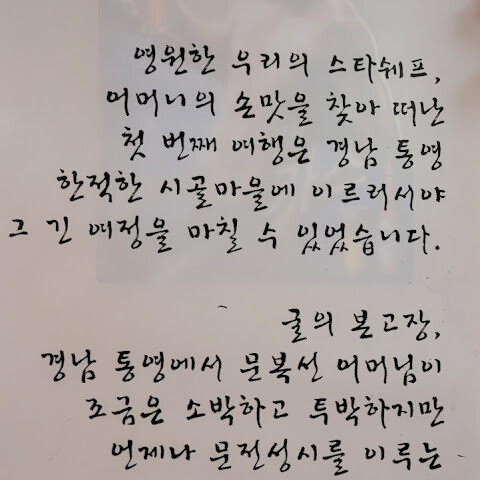 영원한 우리의 스타쉐프,
어머니의 손맛을 찾아 떠난
첫 번째 여행은 경남 통영
한적한 시골마을에 이르러서야
그 긴 여정을 마칠 수 있었습니다.
굴의 본고장,
경남 통영에서 문복선 어머님이
조금은 소박하고 투박하지만
언제나 문전성시를 이루는